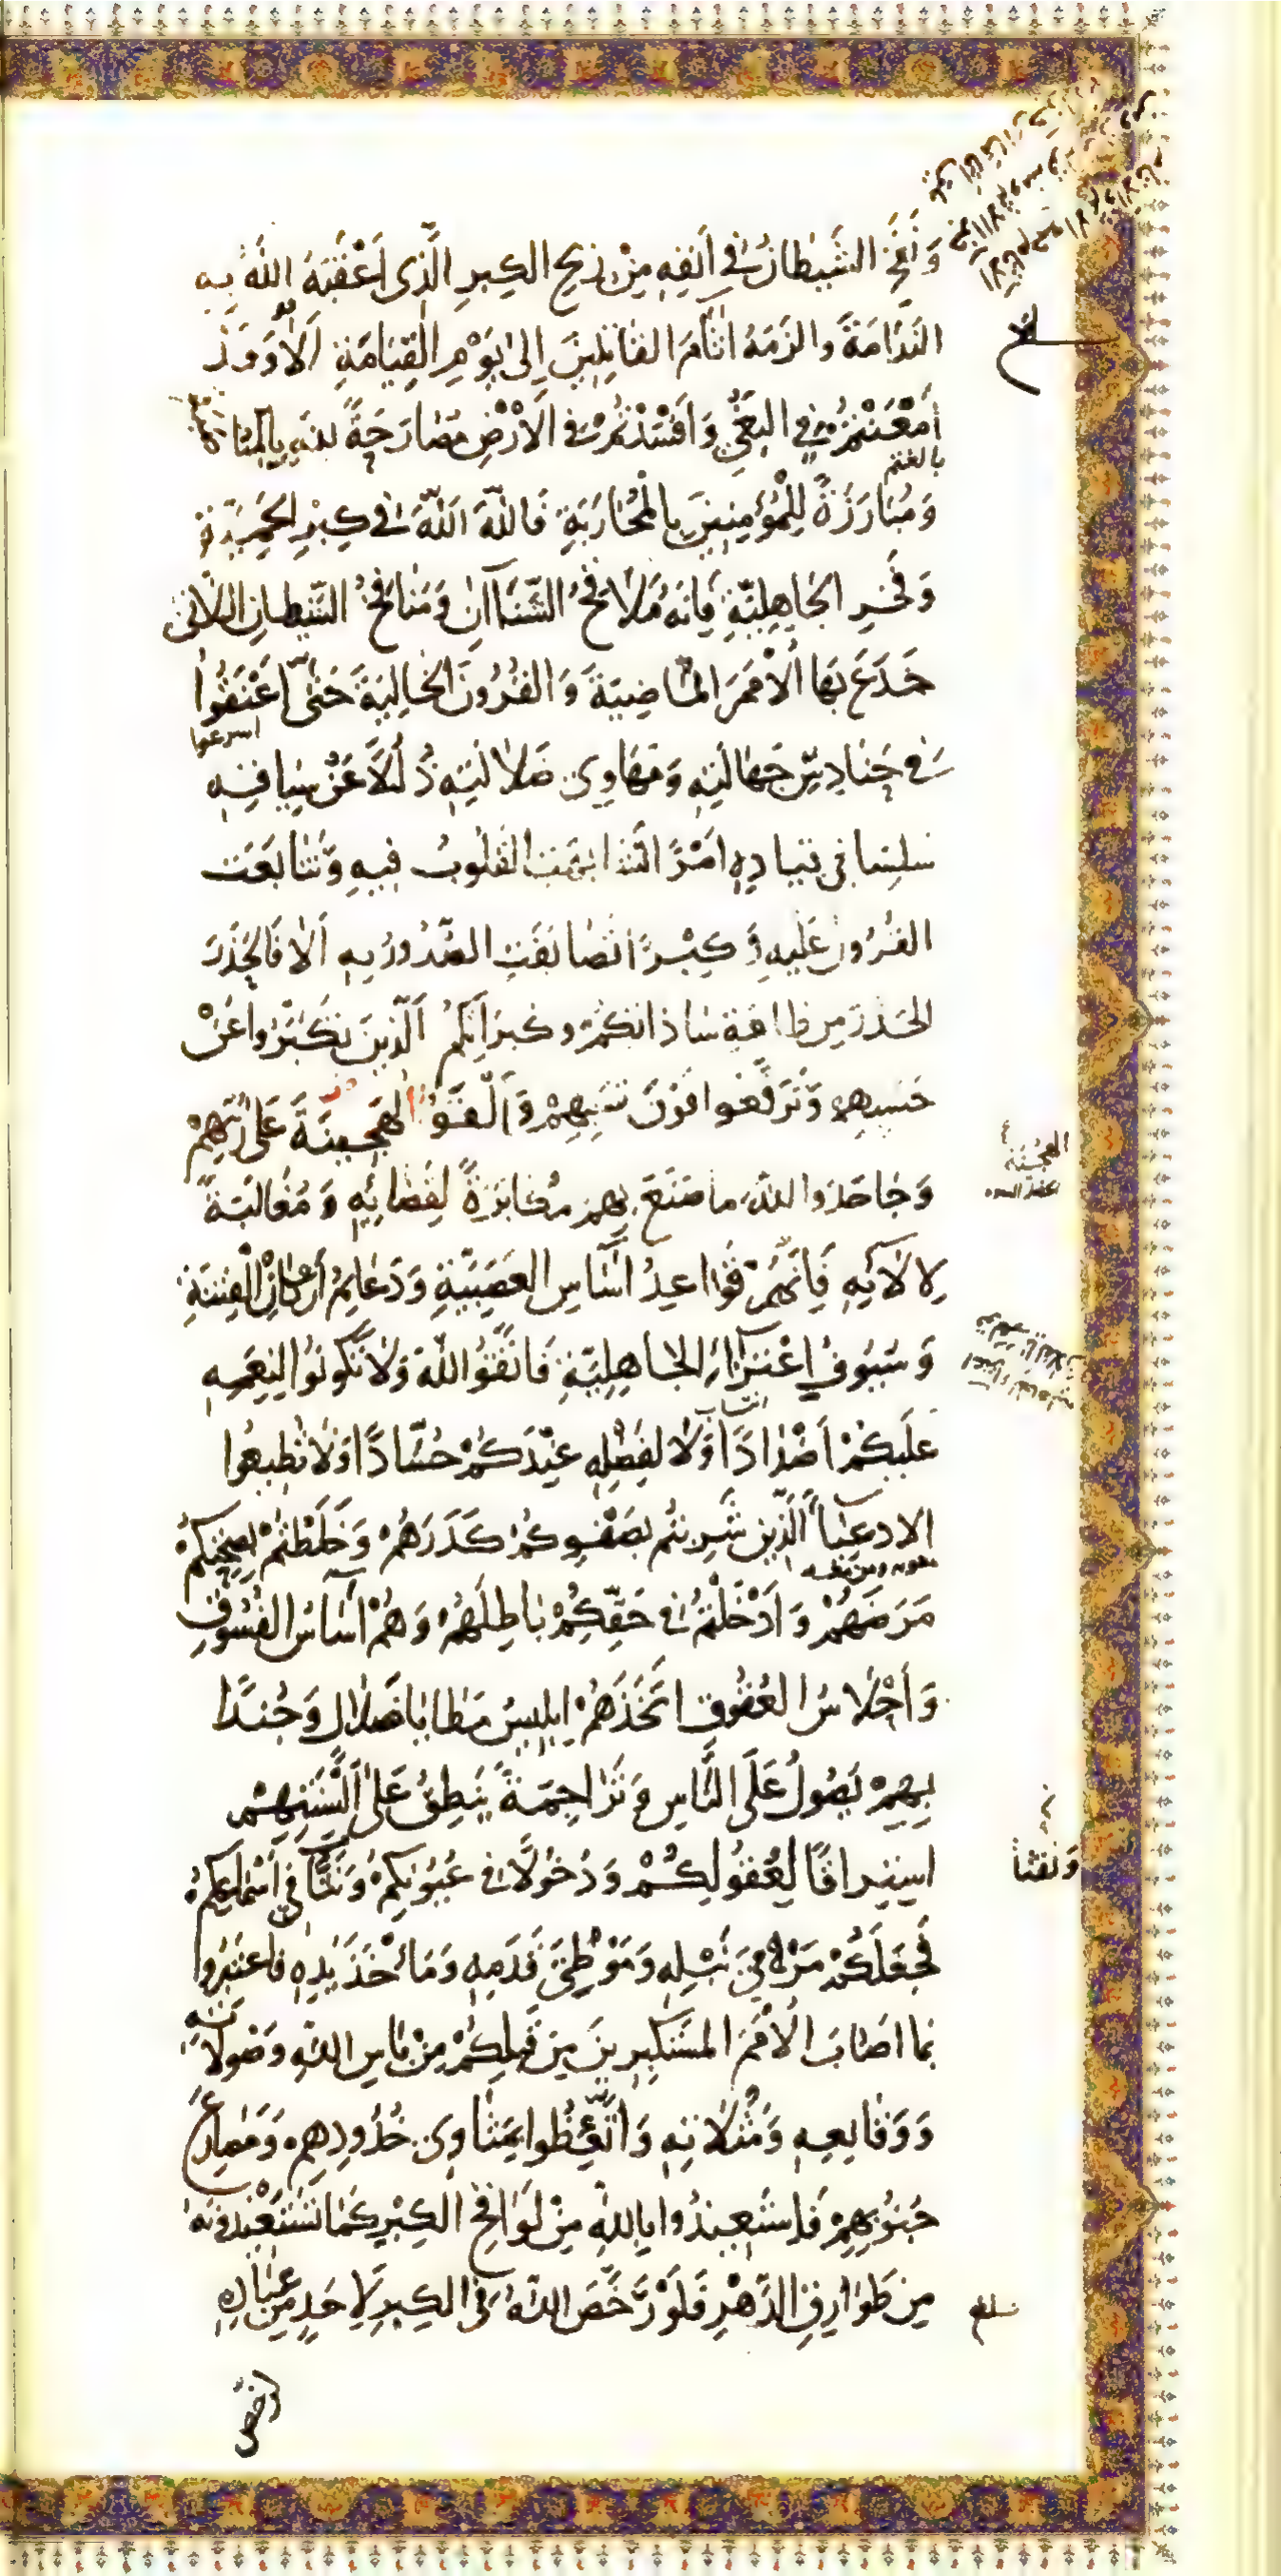 وَنَفَخَ الشَّيْطَانُ فِي اَنْفِهِ مِنْ رِيحِ الكِبرِ الَّذِى اَعْقَبَهُ اللهُ بِهِ
النَّدَامَةَ وَالزَمَهُ اثَامَ القَاتِلِينَ اِلىٰ يَوْمِ القِيَامَةِ اَلاٰ وَقَدْ
اَمْعَنْتُمْ فِي البَغْيِ وَاَفْسَدْتُمْ فى الْاَرْضِ مُصَارَحَةً للهِ بِالمُنَاصَبَةِ
وَمُبَارَزَةً لِلْمُؤمِنِينَ بِالْمُحَارَبَةِ فَاللّٰهَ اَللّٰهَ فى كِبْرِ الحَمِيَّةِ
وَفَخْرِ الجَاهِلِيَّةِ فَاِنَّهُ مَلاٰقِحُ الشَّنَآنِ وَمَنَافِخُ الشَّيْطَانِ اللَّاتى
خَدَعَ بهَا الْاُمَمَ المَاضِيَةَ وَالقُرُونَ الخَالِيَةَ حَتّٰى اَعْنَقُوا
اسرعوا
فى حَنَادِسِ جَهَالَتِهِ وَمَهَاوِى ضَلاٰلَتِهِ ذُلُلًا عَنْ سِيَاقِهِ
سُلُسًا فى قِيَادِهِ اَمْرًا تَشَابَهَتِ القُلُوبُ فِيهِ وَتَتَابَعَتِ
القُرُونُ عَلَيهِ وَكِبْرًا تَضَايَقَتِ الصُّدُورُ بِهِ اَلاٰ فَالحَذَرَ
الحَذَرَ مِن طَاعَةِ سَادَاتِكُمْ وكُبَرَائِكُمُ الَّذِينَ تَكَبَّرُوا عَنْ
حَسَبِهِم وَتَرَفَّعُوا فَوْقَ نَسَبِهِمْ وَاَلْقَوُا الهَجِينَةَ عَلىٰ رَبِّهِمْ
وَجَاحَدُوا اللهَ مَا صَنَعَ بِهِمْ مُكَابَرَةً لِقَضَائِهِ وَمُغَالَبَةً
لِاٰلَائِهِ فَاِنَّهُمْ قَوَاعِدُ اَسَاسِ العَصَبِيَّةِ وَدَعَائِمُ اَرْكَانِ الْفِتْنَةِ
وَسُيُوفُ اعْتِزَاءِ الجَاهِلِيَّةِ فَاتَّقُوا اللّٰهَ وَلاٰ تَكُونُوا لِنِعَمِهِ
عَلَيْكُمْ اَضْدَادًا وَلاٰ لِفَضْلِهِ عِنْدَكُمْ حُسَّادًا وَلاٰ تُطِيعُوا
الادعِيَاءَ الَّذِينَ شَرِبْتُم بِصَفْوِكُمْ كَدَرَهُمْ وَخَلَطْتُمْ بِصِحَّتِكُمْ
مَرَضَهُمْ وَاَدْخَلْتُمْ فى حَقِّكُمْ بَاطِلَهُمْ وَهُمْ اَسَاسُ الفُسُوقِ
وَاَحْلَاسُ العُقُوقِ اتَّخَذَهُمْ اِبْلِيسُ مَطَايَا ضَلاٰلٍ وَجُنْدًا
بِهِمْ يَصُولُ عَلَى النَّاسِ وَتَرَاجِمَةً يَنْطِقُ عَلىٰ اَلْسِنَتِهِمْ
اسْتِرَاقًا لِعُقُولِكُمْ وَدُخُولًا فى عُيُونِكُمْ وَنَثًّا فى اَسْمَاعِكُمْ
وَنَفْثًا
فَجَعَلَكُمْ مَرْمىٰ نَبْلِهِ وَمَوْطِئَ قَدَمِهِ وَمَاْخَذَ يَدِهِ فَاعْتَبِرُوا
بمَا اَصَابَ الْاُمَمَ المُسْتَكْبِرِينَ مِنْ قَبْلِكُمْ مِنْ بَاسِ اللهِ وَصَوْلَاتِهِ
وَوَقَائِعِهِ وَمَثُلَاتِهِ وَاتَّعِظُوا بمَثَاوِى خُدُودِهِمْ وَمَصَارِعِ
جُنُوبِهِمْ فَاسْتَعِيذُوا بِاللهِ مِنْ لَوَاقِحِ الكِبْرِ كَمَا تَسْتَعِيْذُونَهُ
مِنْ طَوَارِقِ الدَّهْرِ فَلَوْ رَخَّصَ اللّٰهُ فى الكِبرِ لِاَحَدٍ مِن عِبَادِهِ